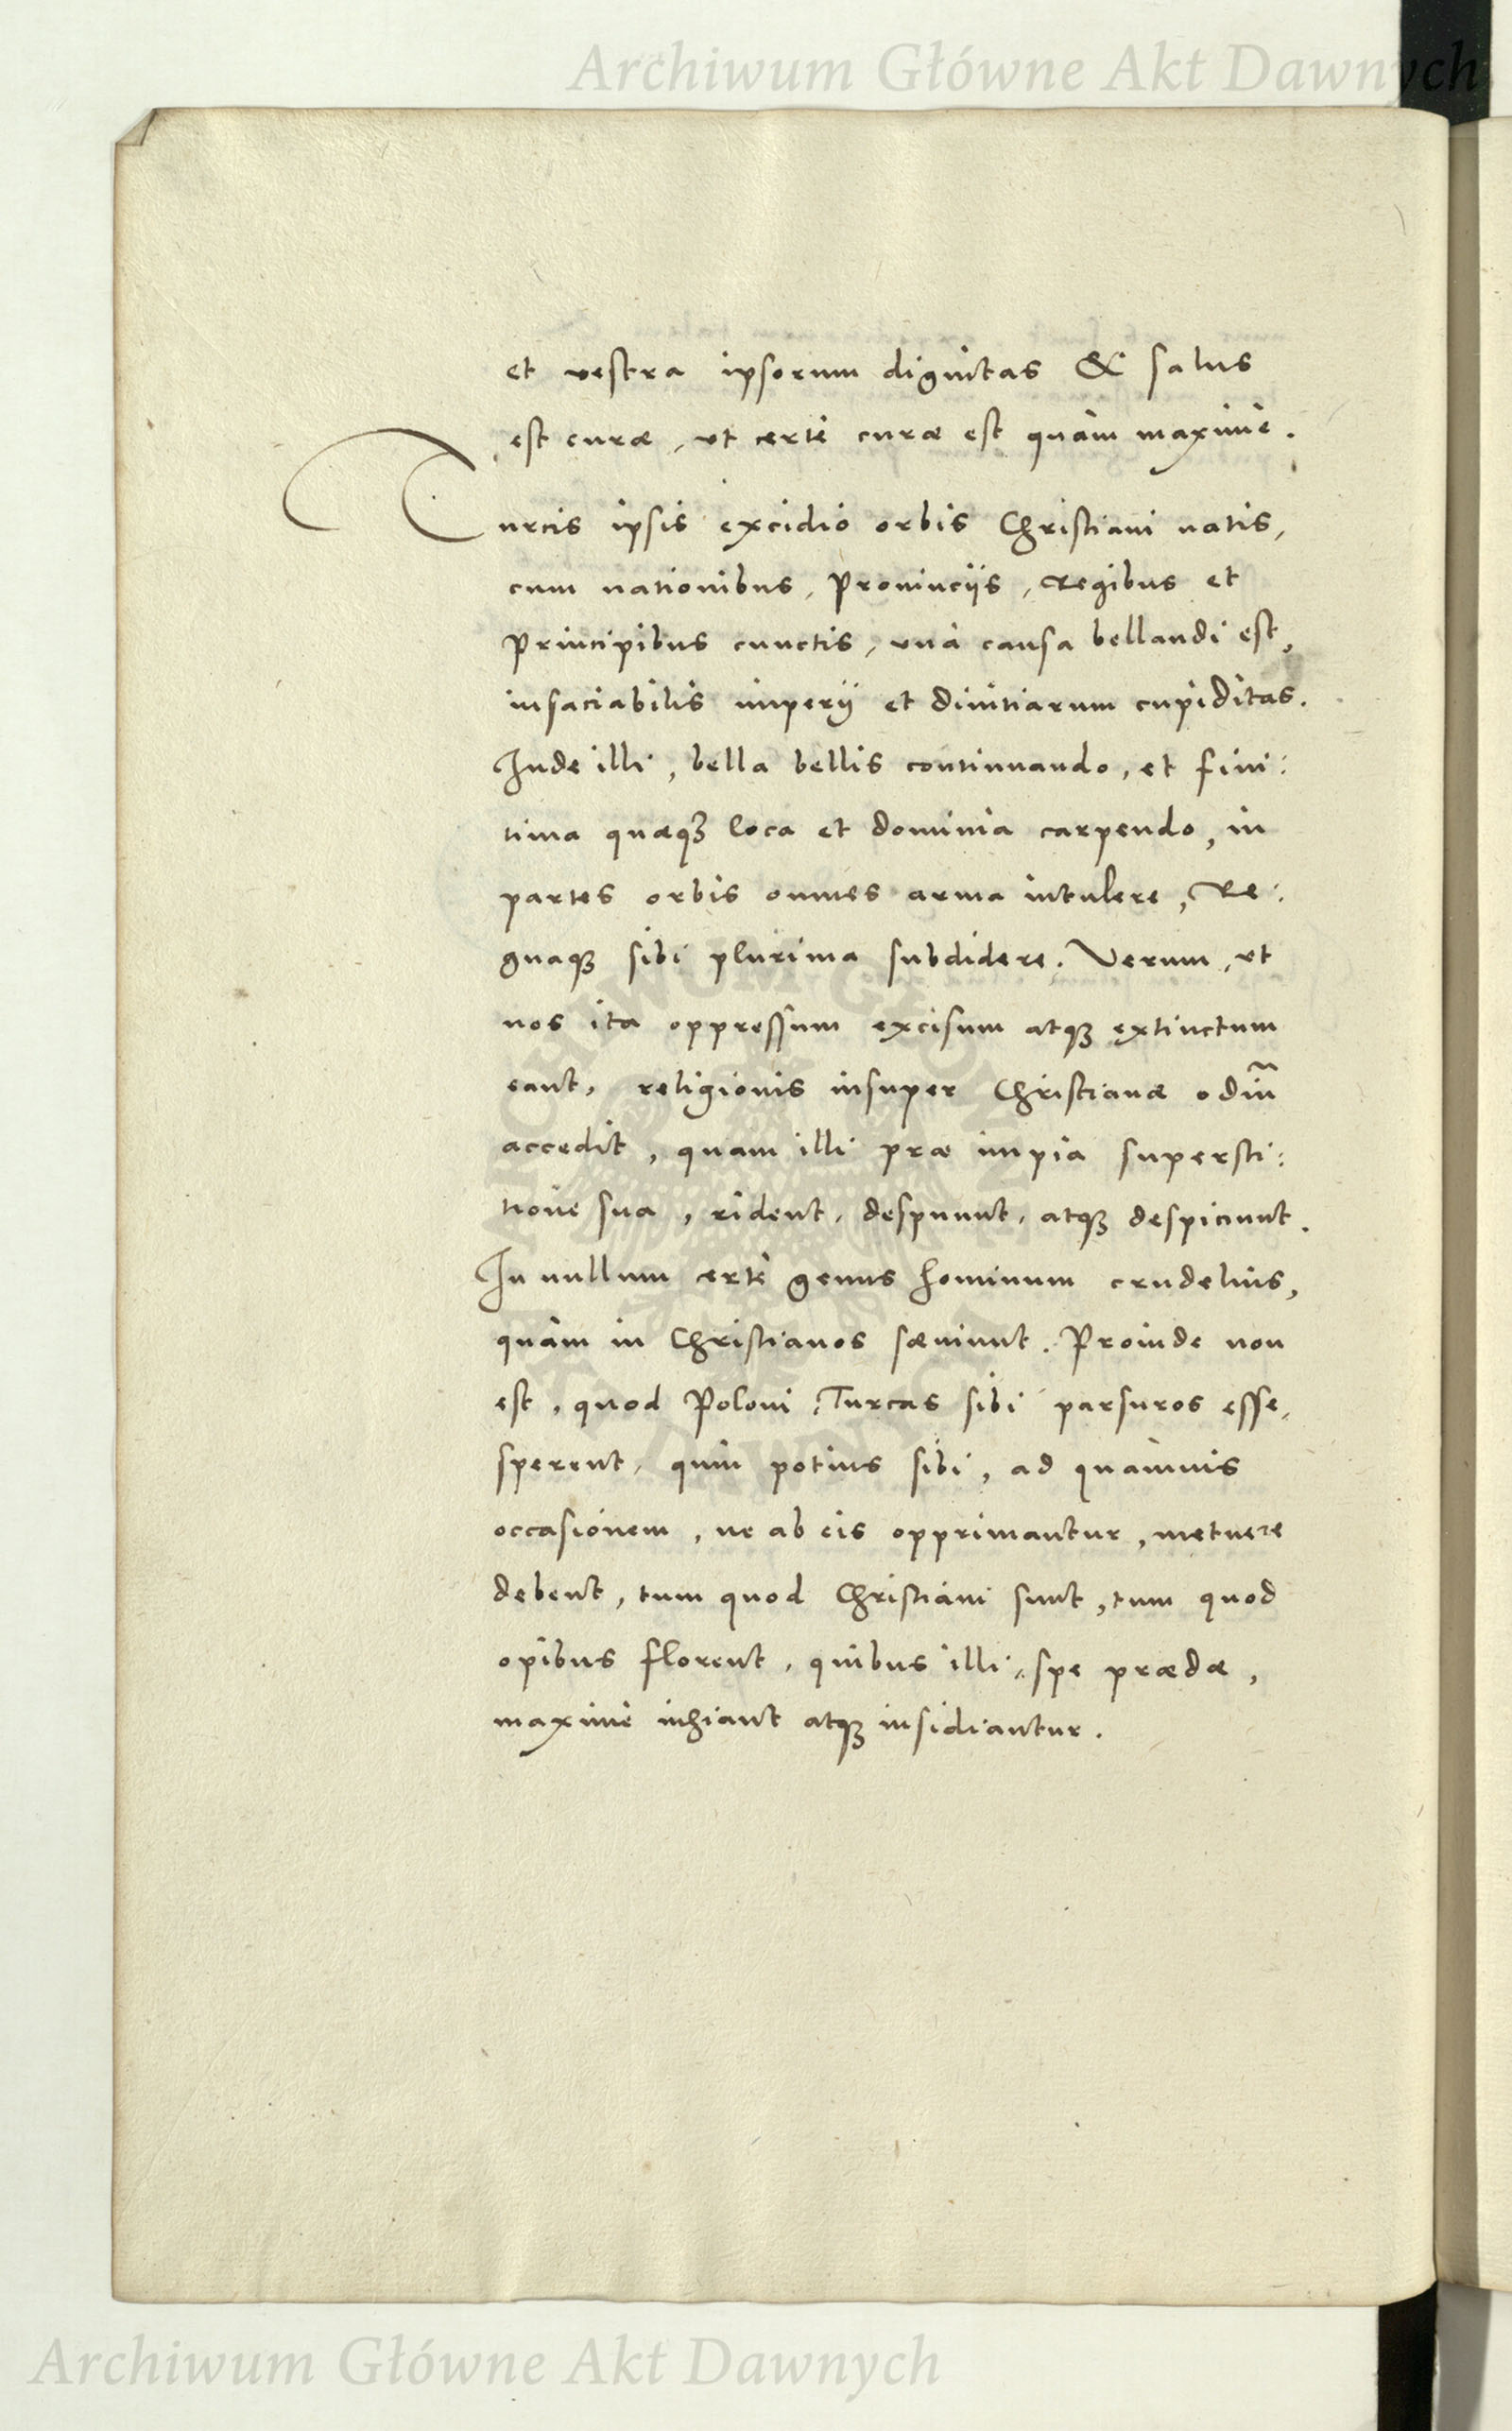 Archiwum Główne Akt Dawnych
et vestra ipsorum dignitas & salus
est curæ, vt certè curæ est quàm maximè.
Turcis ipsis excidio orbis Christiani natis,
cum nationibus, Prouincijs, Regibus et
Principibus cunctis, vna causa bellandi est,
insaciabilis imperij et diuitiarum cupiditas.
Inde illi, bella bellis continuando, et fini:
tima quæq3 loca et dominia carpendo, in
partes orbis omnes arma intulere, Re:
gnaq3 sibi plurima subdidere. Verum, vt
nos ita oppressum excisum atq3 extinctum
eant, religionis insuper Christianæ odiũ
accedit, quam illi præ impia supersti:
tione sua, rident, despuunt, atq3 despiciunt.
In nullum certè genus hominum crudelius,
quàm in Christianos sæuiunt. Proinde non
est, quod Poloni, Turcas sibi parsuros esse,
sperent, quin potius sibi, ad quamuis
occasionem, ne ab eis opprimantur, metuere
debent, tum quod Christiani sunt, tum quod
opibus florent, quibus illi, spe prædæ,
maximè inhiant atq3 insidiantur.
Archiwum Główne Akt Dawnych